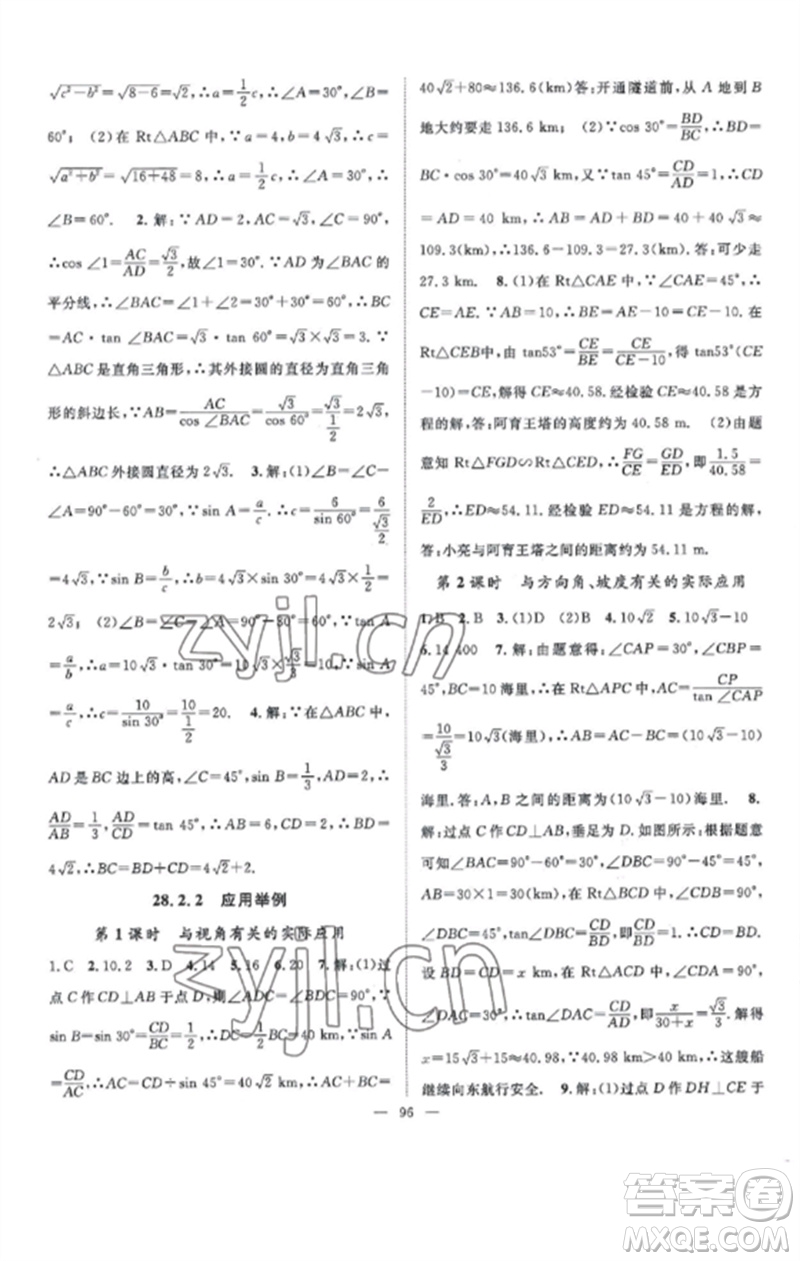 √(c²−b²)=√(8−6)=√2,∴a=1/2c,∴∠A=30°,∠B=
60°;　(2)在 Rt△ABC 中,∵a=4,b=4√3,∴c=
√(a²+b²)=√(16+48)=8,∴a=1/2c,∴∠A=30°,∴
∠B=60°.　2.解:∵AD=2,AC=√3,∠C=90°,
∴cos ∠1=AC/AD=√3/2,故∠1=30°,∵AD为∠BAC的
平分线,∴∠BAC=∠1+∠2=30°+30°=60°,∴
BC=AC·tan ∠BAC=√3·tan 60°=√3×√3=3.∵
△ABC是直角三角形,∴其外接圆的直径为直角三角
形的斜边长,∵AB=AC/cos ∠BAC=√3/cos 60°=√3/(1/2)=2√3,
∴△ABC外接圆直径为2√3.　3.解:(1)∠B=∠C−
∠A=90°−60°=30°,∵sin A=a/c,∴c=6/sin 60°=6/(√3/2)
=4√3,∵sin B=b/c,∴b=4√3·sin 30°=4√3×1/2=
2√3;　(2)∠A=∠C−∠B=90°−60°=30°,∵tan A
=a/b,∴a=10√3·tan 30°=10√3×√3/3=10,∵sin A=
a/c,∴c=10/sin 30°=10/(1/2)=20.　4.解:∵在△ABC中,
AD是BC边上的高,∠C=45°,sin B=1/3,AD=2,∴
AD/AB=1/3,AD/CD=tan 45°,∴AB=6,CD=2,∴BD=
4√2,∴BC=BD+CD=4√2+2.
28.2.2　应用举例
第1课时　与视角有关的实际应用
1.C　2.10.2　3.D　4.14　5.16　6.20　7.解:(1)过
点C作CD⊥AB于点D,则∠ADC=∠BDC=90°,∵
sin B=sin 30°=CD/BC=1/2,∴DC=1/2BC=40 km,∵sin A
=CD/AC,∴AC=CD÷sin 45°=40√2 km,∴AC+BC=
40√2+80≈136.6(km)答:开通隧道前,从A地到B
地大约要走136.6 km;　(2)∵cos 30°=BD/BC,∴BD=
BC·cos 30°=40√3 km,又∵tan 45°=CD/AD=1,∴CD
=AD=40 km,∴AB=AD+BD=40+40√3≈
109.3(km)∴136.6−109.3=27.3(km).答:可少走
27.3 km.　8.(1)在Rt△CAE中,∵∠CAE=45°,
∴CE=AE.∵AB=10,∴BE=AE−10=CE−10,在
Rt△CEB中,由 tan53°=CE/BE=CE/(CE−10),得 tan53°(CE
−10)=CE,解得CE≈40.58.经检验CE=40.58是
方程的解,答:阿育王塔的高度约为40.58 m.　(2)由题
意知Rt△FGD∽Rt△CED,∴FG/CE=GD/ED,即1.5/40.58=
2/ED,∴ED≈54.11.经检验ED≈54.11是方程的解,
答:小亮与阿育王塔之间的距离约为54.11 m.
第2课时　与方向角、坡度有关的实际应用
1.B　2.B　3.(1)D　(2)B　4.10√2　5.10√3−10
6.14 400　7.解:由题意得:∠CAP=30°,∠CBP=
45°,BC=10海里,∴在Rt△APC中,AC=CP/tan ∠CAP
=10/(√3/3)=10√3(海里)∴AB=AC−BC=(10√3−10)
海里.答:A,B之间的距离为(10√3−10)海里.　8.
解:过点C作CD⊥AB,垂足为D.如图所示:根据题意
可知∠BAC=90°−60°=30°,∠DBC=90°−30°=60°,
AB=30×1=30(海里),∴∠BCD=90°−60°=30°,在
Rt△BCD中,∠CDB=90°,tan∠DBC=CD/BD=√3,即CD/BD=√3,
设BD=CD=x km,在Rt△ACD中,∵∠CDA=90°,
∠DAC=30°,∴tan∠DAC=CD/AD,即x/(30+x)=√3/3.解得
x=15√3+15≈40.98.∵40.98 km>40 km∴这艘船
继续向东航行安全.　9.解:(1)过点D作DH⊥CE于
— 96 —
zyjl.cn
zyjl.cn
答案圈
MXQE.COM